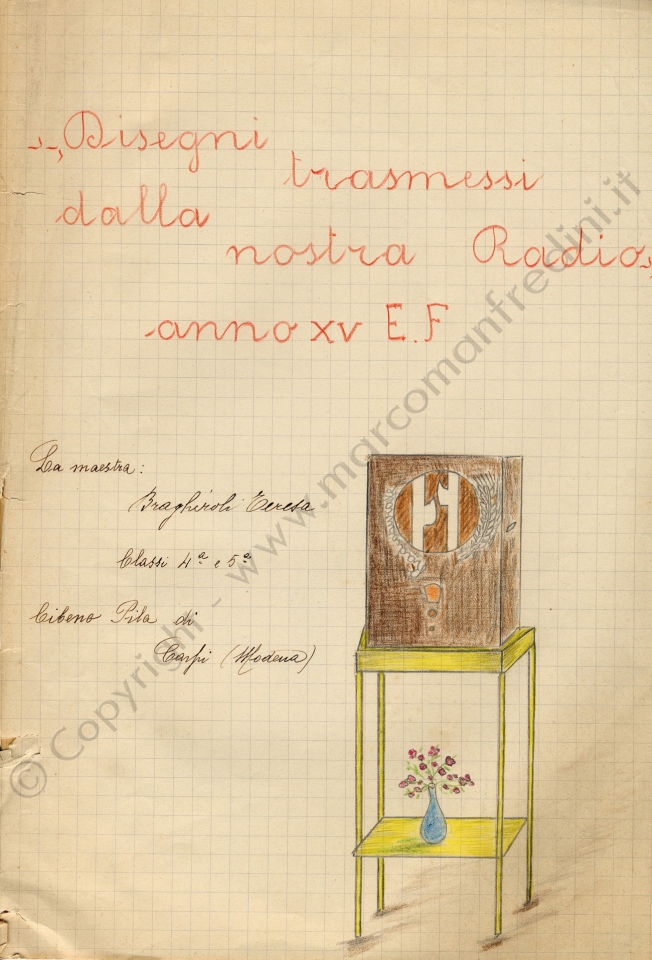 „Disegni
trasmessi
dalla
nostra Radio„
anno XV E.F
La maestra:
Braghiroli Teresa
Classi 4ª e 5ª
Cibeno Pila di
Carpi (Modena)
© Copyright - www.marcomanfredini.it